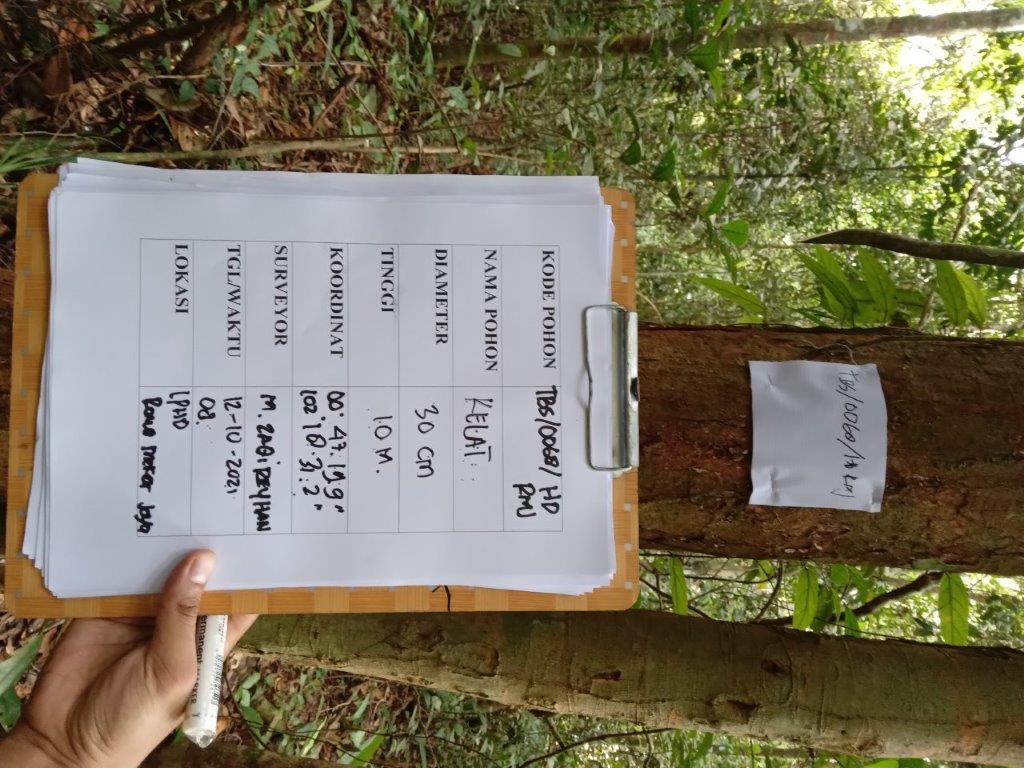 TBS/0068/HD RMJ
KODE POHON TBS/0068/ HD
RMJ
NAMA POHON KELAT
DIAMETER 30 cm
TINGGI 10 M.
KOORDINAT 00° 47. 19.9"
102° 10. 31.2"
SURVEYOR M. ZAQI REYHAN
TGL/WAKTU 12-10-2021
08.
LOKASI LPHD
Rawa mekar Jaya
permanent MARKER